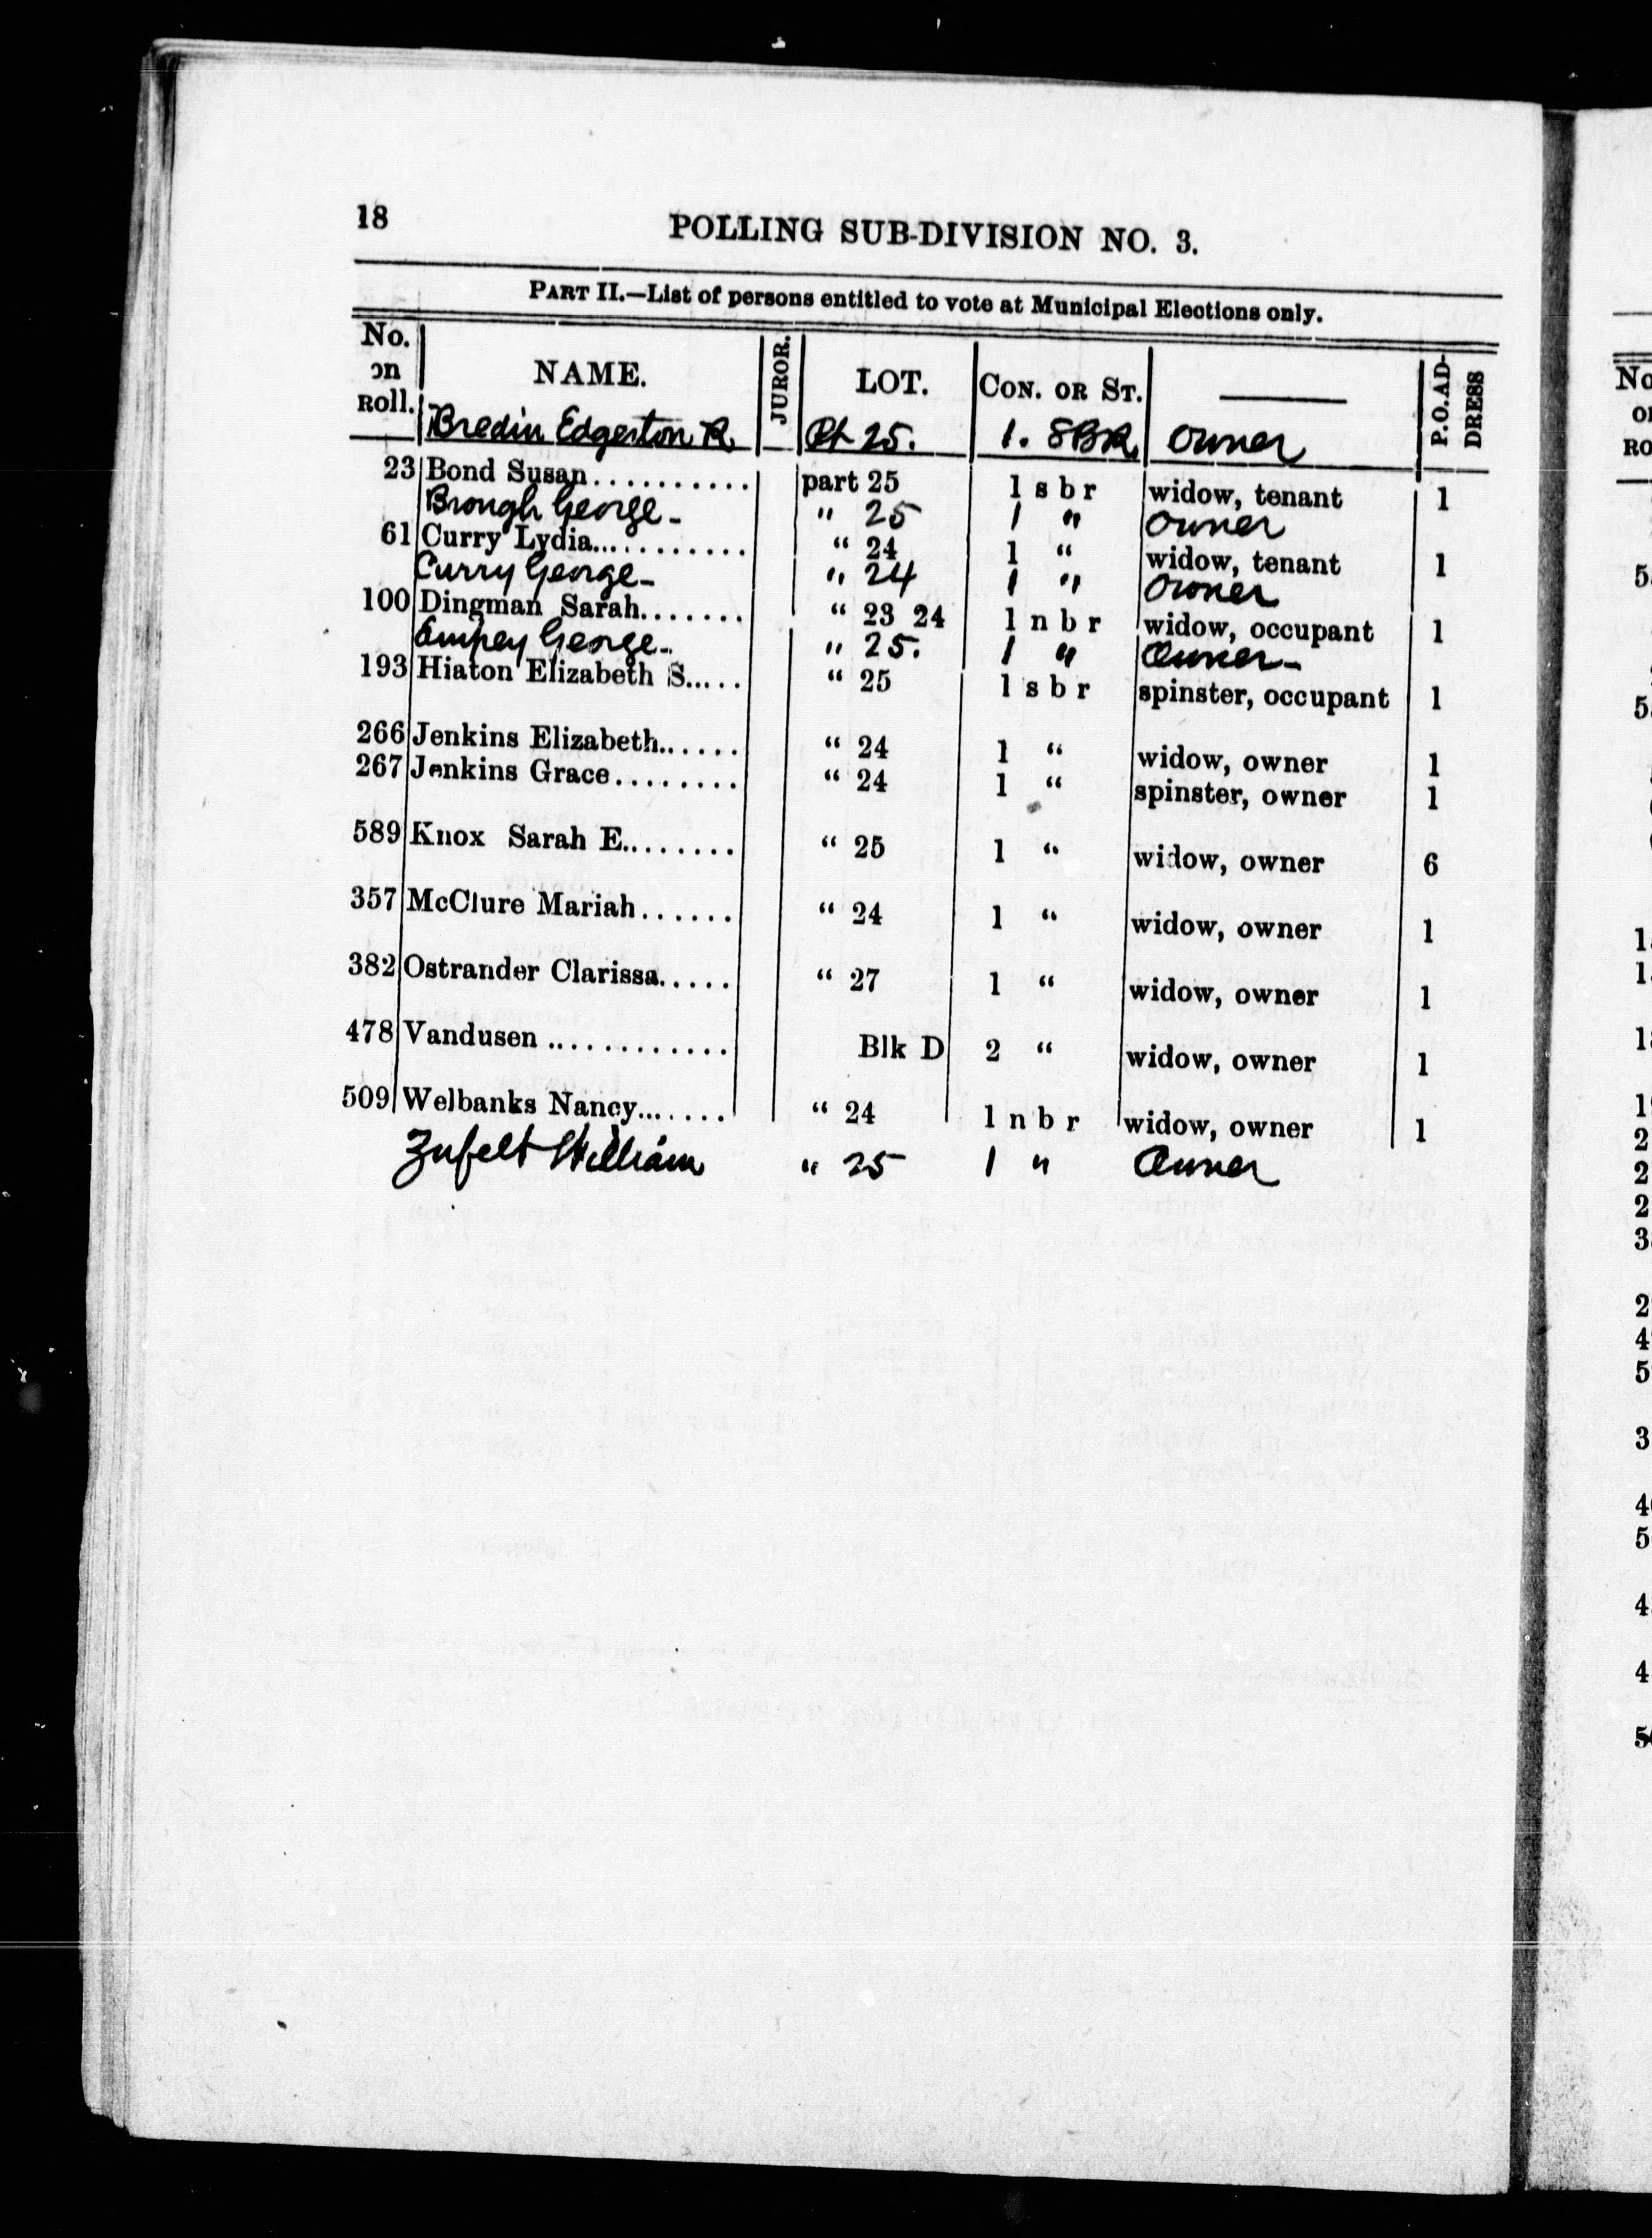 18
POLLING SUB-DIVISION NO. 3.
PART II.—List of persons entitled to vote at Municipal Elections only.
No. on Roll. NAME. JUROR. LOT. CON. OR ST. P.O. ADDRESS
Bredin Edgerton R. Pt 25. 1. SBR. owner
23 Bond Susan........... part 25 1 s b r widow, tenant 1
Brough George - " 25 1 " owner
61 Curry Lydia............ “ 24 1 “ widow, tenant 1
Curry George - " 24 1 " owner
100 Dingman Sarah....... “ 23 24 1 n b r widow, occupant 1
Empey George - " 25. 1 " Owner -
193 Hiaton Elizabeth S..... “ 25 1 s b r spinster, occupant 1
266 Jenkins Elizabeth...... “ 24 1 “ widow, owner 1
267 Jenkins Grace........ “ 24 1 “ spinster, owner 1
589 Knox Sarah E........ “ 25 1 “ widow, owner 6
357 McClure Mariah...... “ 24 1 “ widow, owner 1
382 Ostrander Clarissa..... “ 27 1 “ widow, owner 1
478 Vandusen ............. Blk D 2 “ widow, owner 1
509 Welbanks Nancy....... “ 24 1 n b r widow, owner 1
Zufelt William " 25 1 " Owner